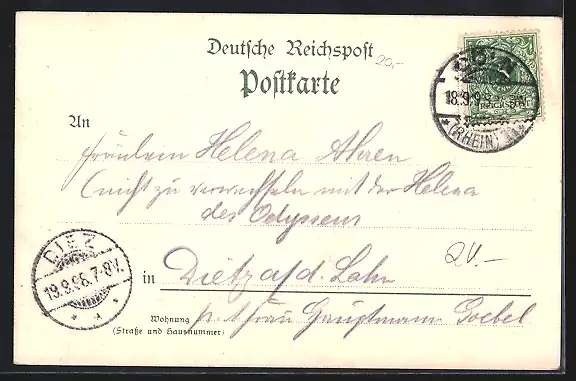 Deutsche Reichspost
20,-
Postkarte
CÖLN
18.9.98
(RHEIN)
REICHSPOST
An
Fräulein Helena Ahren
(nicht zu verwechseln mit der Helena
des Odysseus
DIEZ
19.9.98. 7-8V.
20.–
in Dietz a/d. Lahn
Wohnung
(Straße und Hausnummer)
p. A frau Hauptmann Goebel